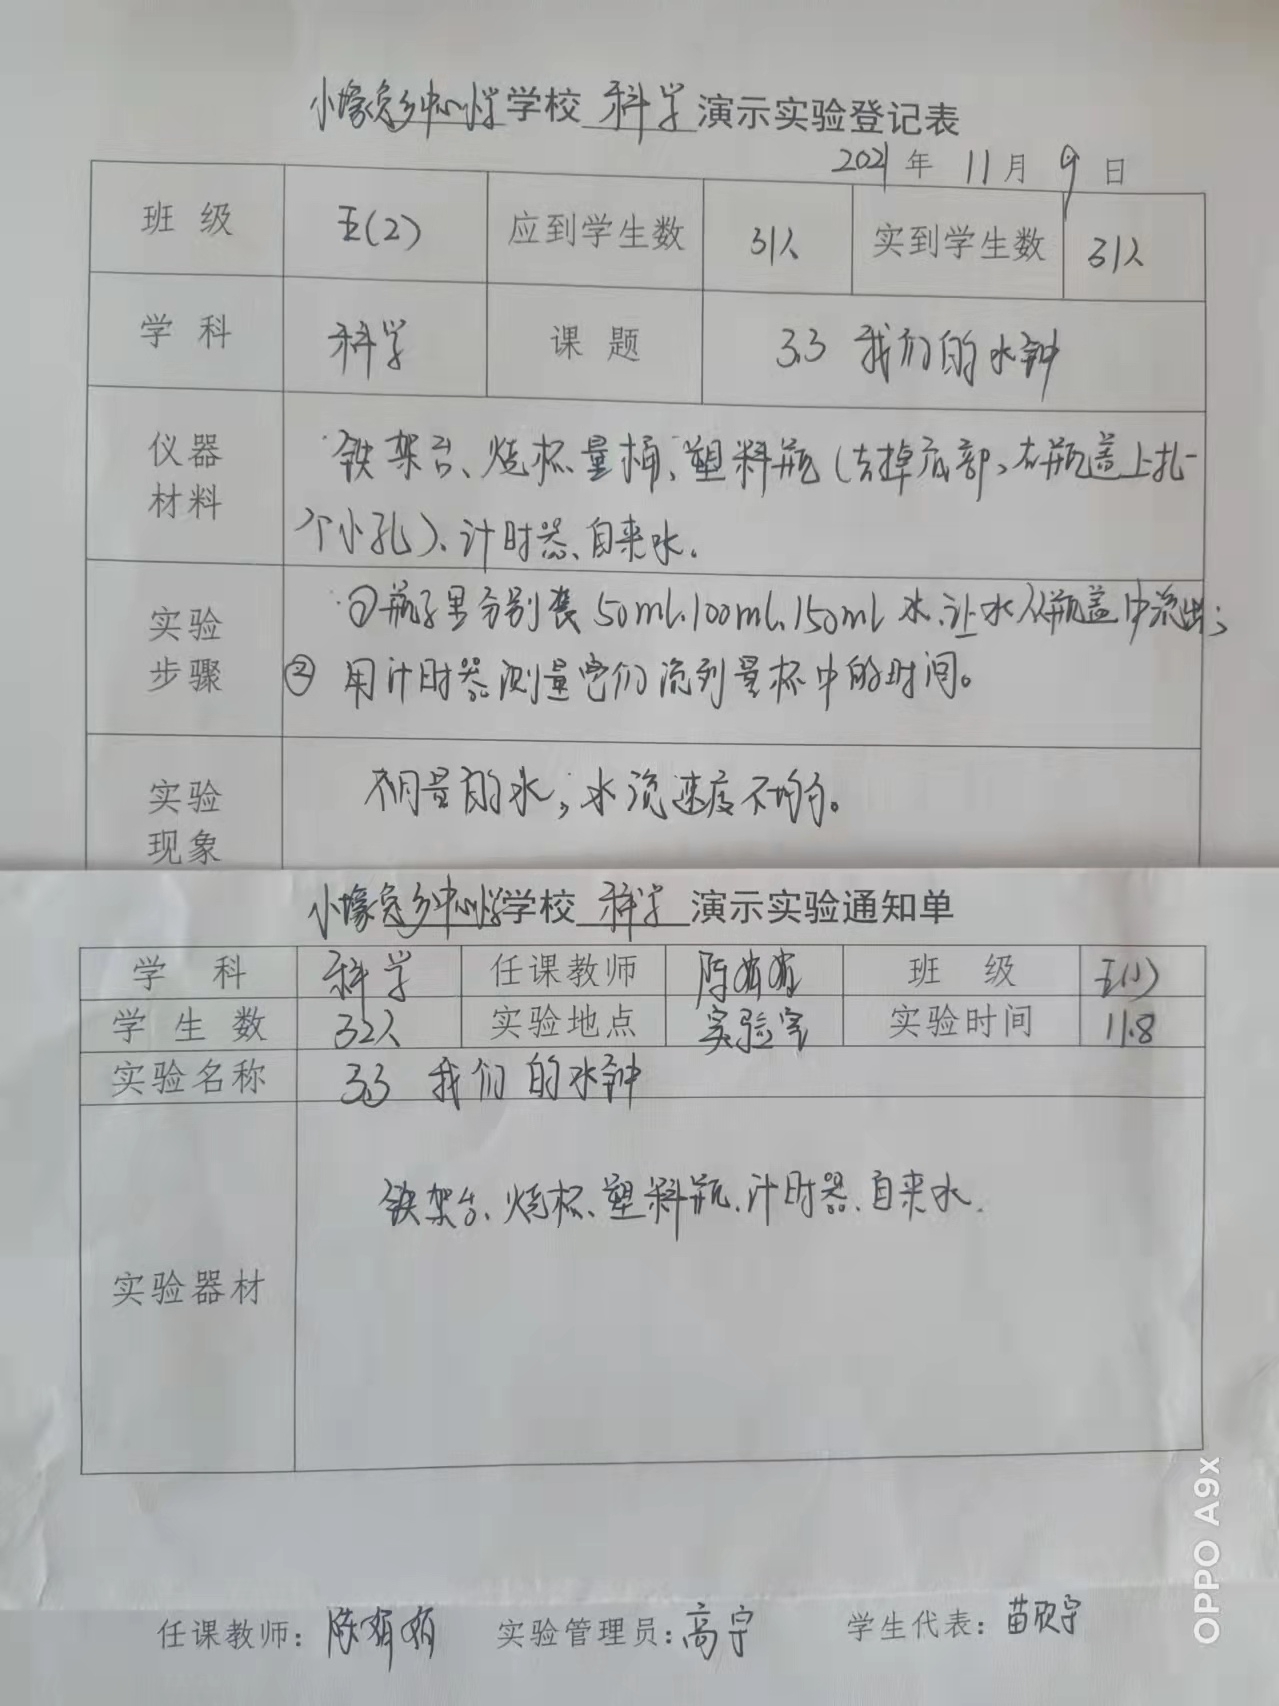 小壕兔乡中心小学学校 科学 演示实验登记表
2021年 11月 9日
班级 五(2) 应到学生数 31人 实到学生数 31人
学科 科学 课题 3.3 我们的水钟
仪器材料 铁架台、烧杯、量桶、塑料瓶(去掉底部,在瓶盖上扎一
个小孔)、计时器、自来水。
实验步骤 ①瓶子里分别装50ml、100ml、150ml水,让水从瓶盖中流出;
② 用计时器测量它们流到量杯中的时间。
实验现象 不同量的水,水流速度不均匀。
小壕兔乡中心小学学校 科学 演示实验通知单
学科 科学 任课教师 陈娟娟 班级 五(1)
学生数 32人 实验地点 实验室 实验时间 11.8
实验名称 3.3 我们的水钟
实验器材 铁架台、烧杯、塑料瓶、计时器、自来水.
任课教师: 陈娟娟 实验管理员: 高宁 学生代表: 苗欣宇
OPPO A9x